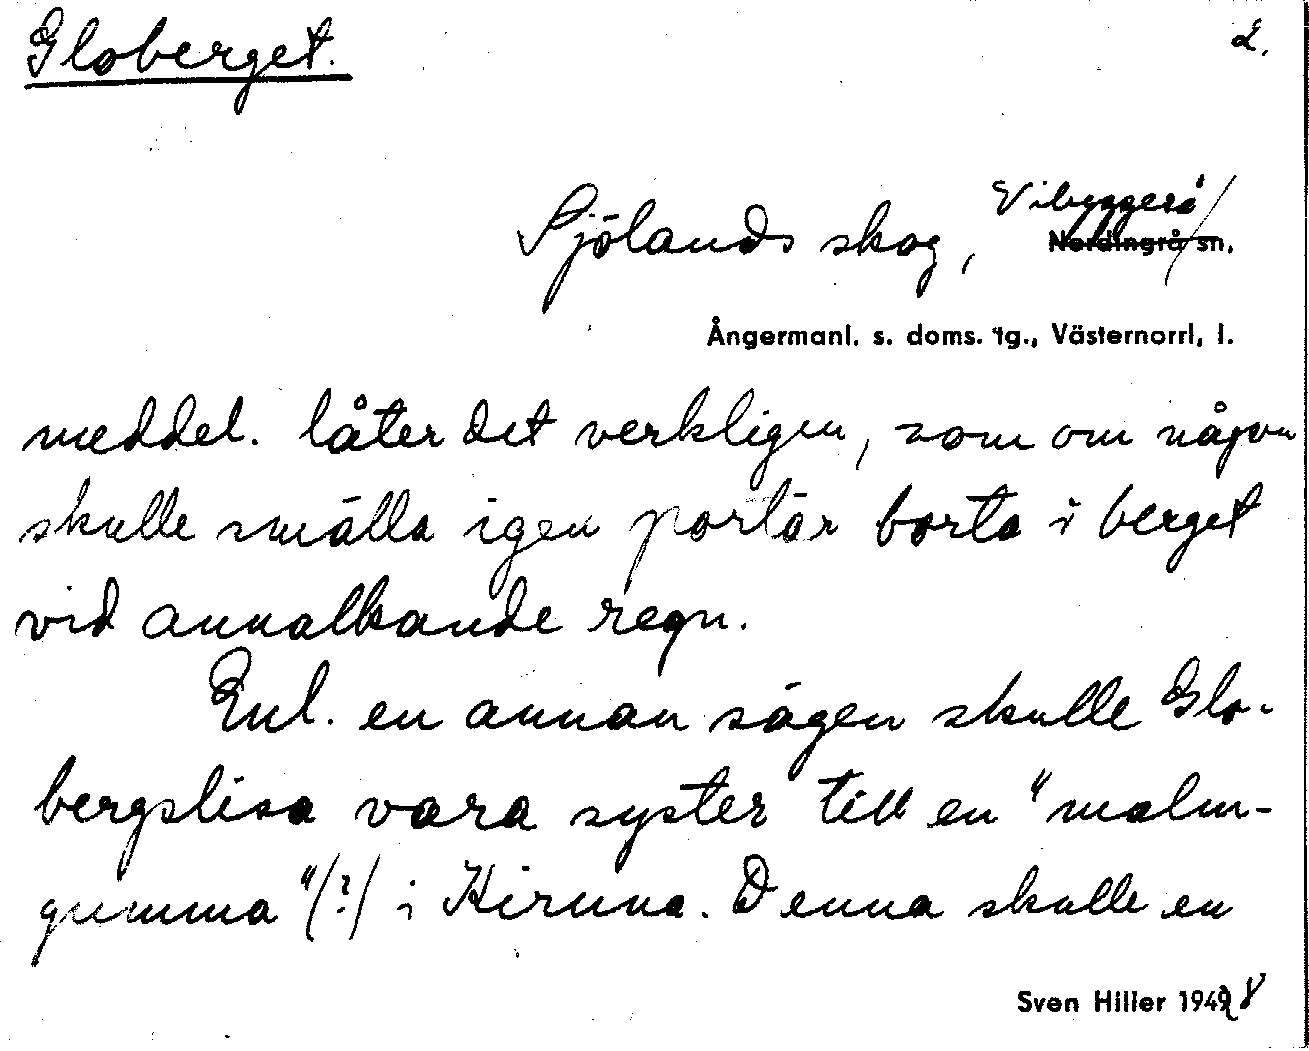 Globerget. 2.
Vibyggerå
Sjölands skog, Nordingrå sn.
Ångermanl. s. doms. tg., Västernorrl. l.
meddel. låter det verkligen, som om någon
skulle smälla igen portar borta i berget
vid annalkande regn.
Enl. en annan sägen skulle Glo-
bergslisa vara syster till en "malm-
gumma"(?) i Kiruna. Denna skulle en
Sven Hiller 1948